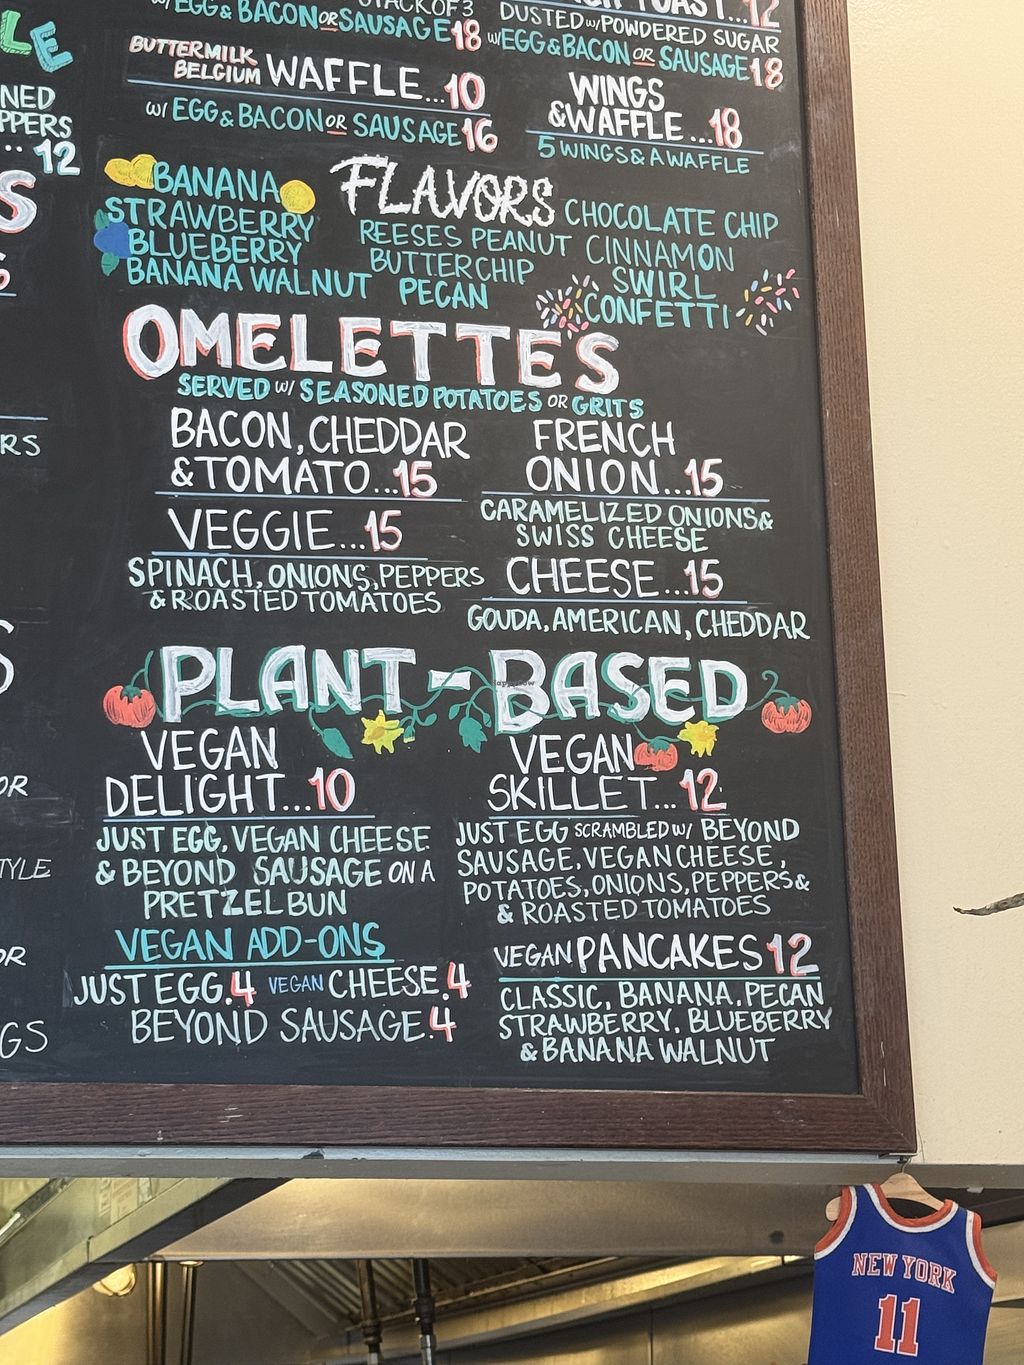 LE
NED
PPERS
.. 12
S
RS
S
OR
TYLE
OR
GS
STACK OF 3
W/ EGG & BACON OR SAUSAGE 18
TOAST...12
DUSTED W/ POWDERED SUGAR
W/ EGG & BACON OR SAUSAGE 18
BUTTERMILK
BELGIUM WAFFLE...10
W/ EGG & BACON OR SAUSAGE 16
WINGS
& WAFFLE...18
5 WINGS & A WAFFLE
FLAVORS
BANANA
STRAWBERRY
BLUEBERRY
BANANA WALNUT
REESES PEANUT
BUTTERCHIP
PECAN
CHOCOLATE CHIP
CINNAMON
SWIRL
CONFETTI
OMELETTE'S
SERVED W/ SEASONED POTATOES OR GRITS
BACON, CHEDDAR
& TOMATO...15
VEGGIE...15
SPINACH, ONIONS, PEPPERS
& ROASTED TOMATOES
FRENCH
ONION...15
CARAMELIZED ONIONS &
SWISS CHEESE
CHEESE...15
GOUDA, AMERICAN, CHEDDAR
PLANT-BASED
VEGAN
DELIGHT...10
JUST EGG, VEGAN CHEESE
& BEYOND SAUSAGE ON A
PRETZEL BUN
VEGAN ADD-ONS
JUST EGG.4 VEGAN CHEESE.4
BEYOND SAUSAGE.4
VEGAN
SKILLET...12
JUST EGG SCRAMBLED W/ BEYOND
SAUSAGE, VEGAN CHEESE,
POTATOES, ONIONS, PEPPERS &
& ROASTED TOMATOES
VEGAN PANCAKES 12
CLASSIC, BANANA, PECAN
STRAWBERRY, BLUEBERRY
& BANANA WALNUT
NEW YORK
11